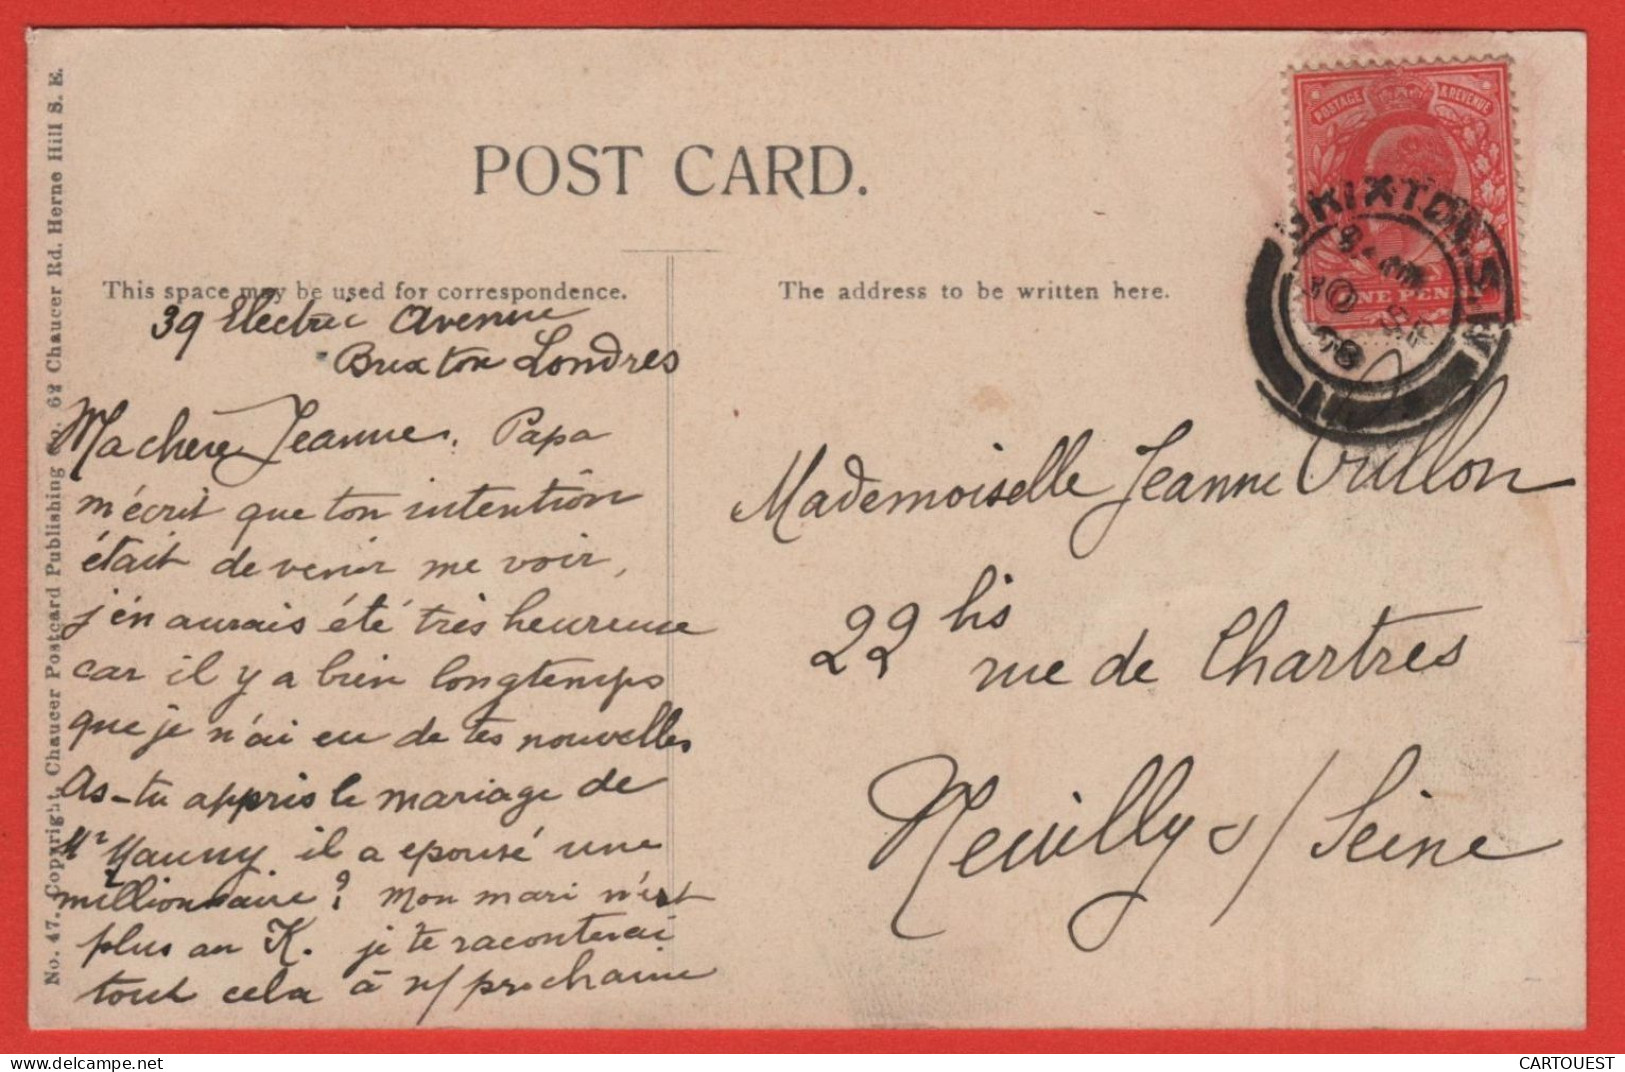 POST CARD.
This space may be used for correspondence.
The address to be written here.
No. 47. Copyright, Chaucer Postcard Publishing Co. 62 Chaucer Rd. Herne Hill S. E.
POSTAGE & REVENUE
ONE PENNY
BRIXTON. S.W
30 SP
08
39 Electric Avenue
Brixton Londres
Ma chère Jeanne. Papa
m'écrit que ton intention
était de venir me voir,
j'en aurais été très heureuse
car il y a bien longtemps
que je n'ai eu de tes nouvelles
As-tu appris le mariage de
Mr Mauny il a epousé une
millionnaire? Mon mari n'est
plus au K. je te raconterai
tout cela à n/ prochaine
Mademoiselle Jeanne
22 bis
rue de Chartres
Neuilly s/ Seine
CARTOUEST